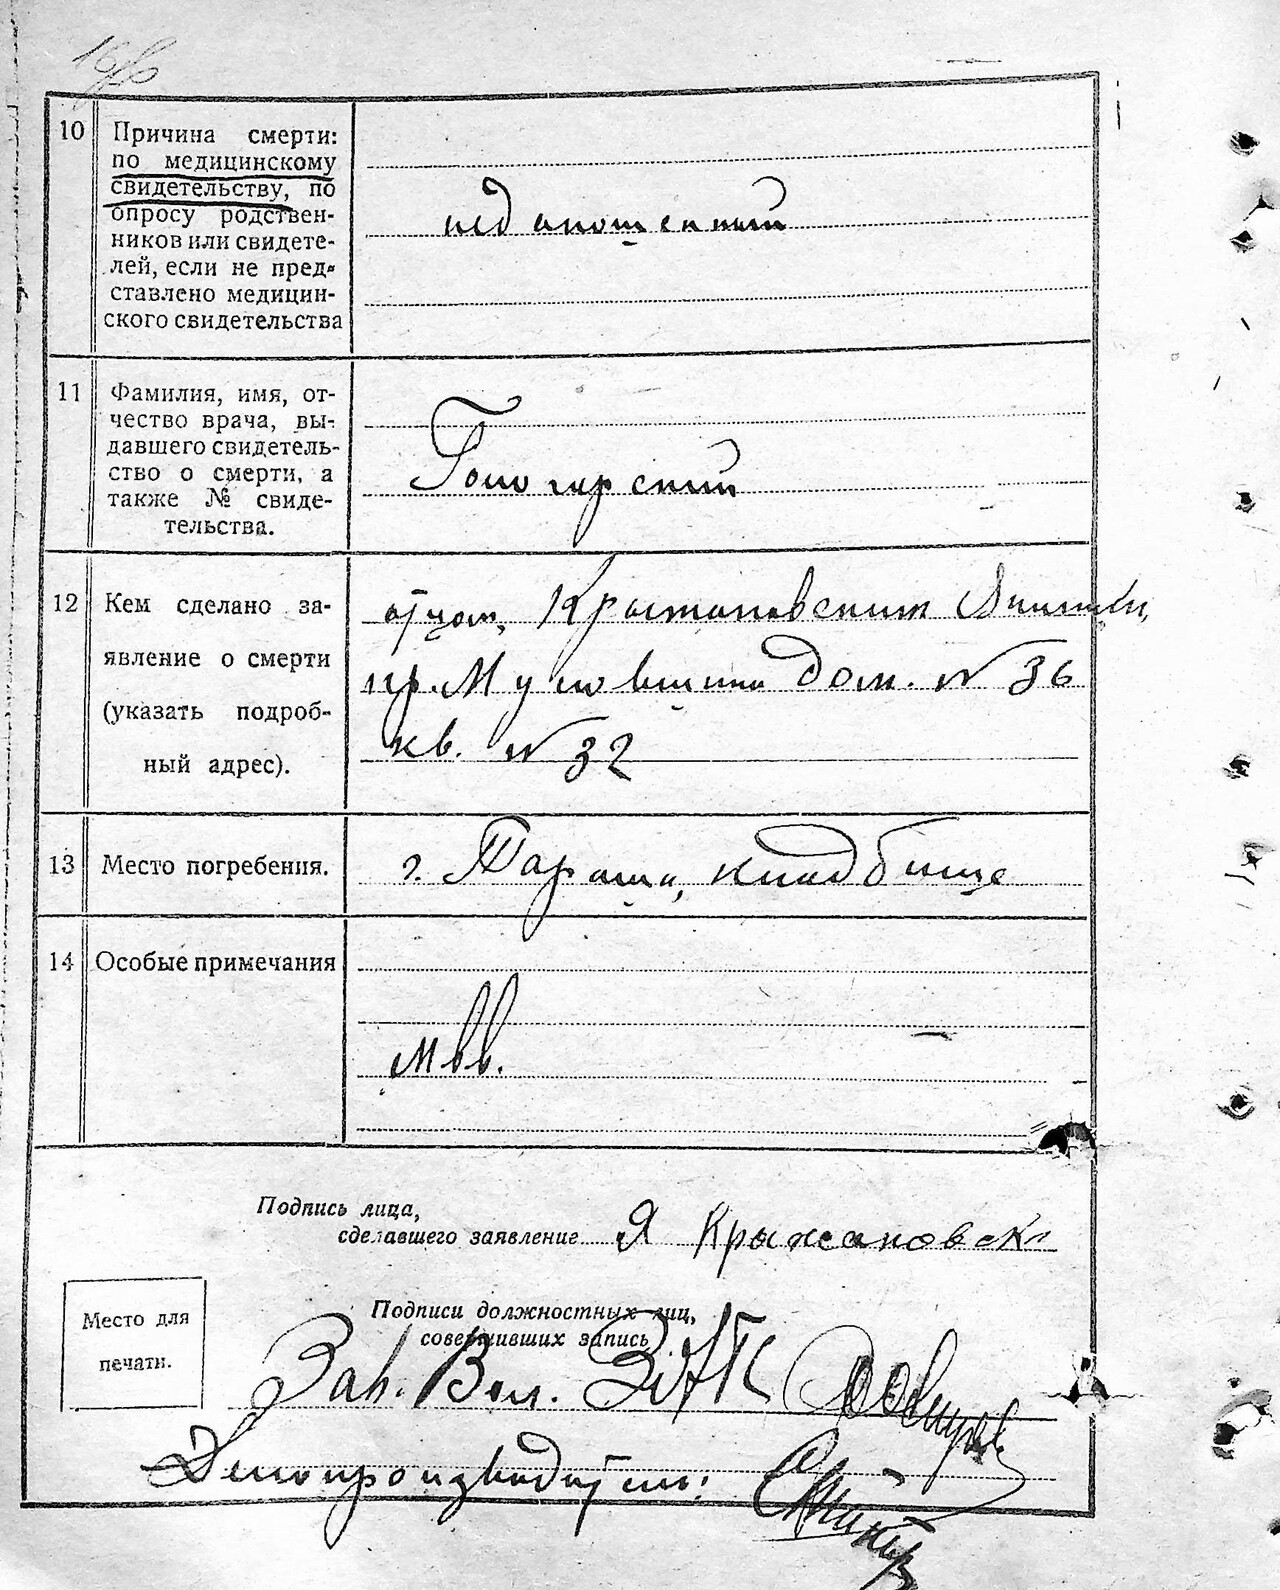 10 Причина смерти:
по медицинскому
свидетельству, по
опросу родствен-
ников или свидете-
лей, если не пред-
ставлено медицин-
ского свидетельства
недоношенный
11 Фамилия, имя, от-
чество врача, вы-
давшего свидетель-
ство о смерти, а
также № свиде-
тельства.
12 Кем сделано за-
явление о смерти
(указать подроб-
ный адрес).
отцом, Крыжановским
пр. дом. № 36
кв. № 32
13 Место погребения.
г. Тараща, кладбище
14 Особые примечания
Подпись лица,
сделавшего заявление Я Крыжановск
Подписи должностных лиц,
совершивших запись
Место для
печати.
Зав. Вол. ЗАГС
Делопроизводитель: